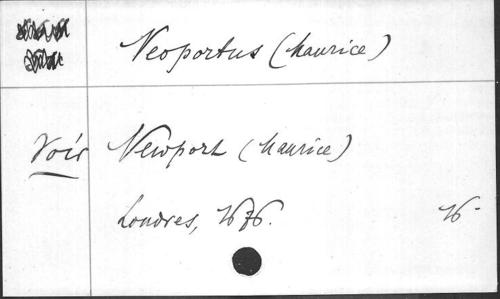 Neoportus (Maurice)
Voir Newport (Maurice)
Londres, 1676.